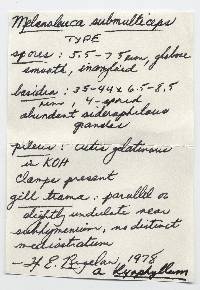 Melanoleuca submulticeps
TYPE
spores: 5.5-7.5 µm, globose
smooth, inamyloid
basidia: 35-44 x 6.5-8.5
µm, 4-spored
abundant siderophilous
granules
pileus: cutis gelatinous
in KOH
Clamps present
gill trama: parallel or
slightly undulate near
subhymenium, no distinct
mediostratum
H. E. Bigelow, 1978
a Lyophyllum